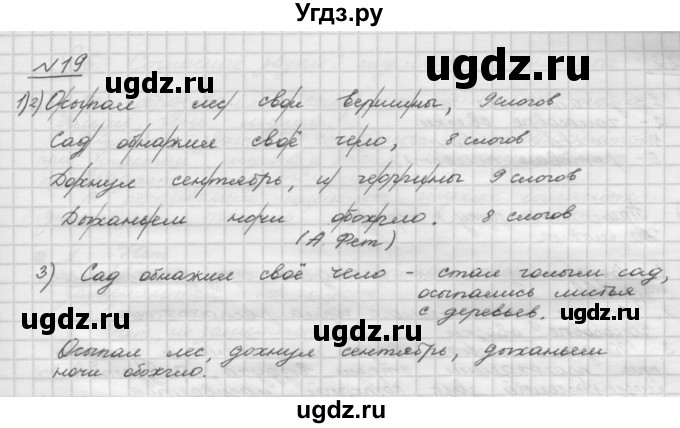 Угдз.ру
№19
1)2) Осыпал лес свои вершины, 9 слогов
Сад обнажил своё чело, 8 слогов
Дохнул сентябрь, и георгины 9 слогов
Дыханьем ночи обожгло. 8 слогов
(А Фет)
3) Сад обнажил своё чело - стал голым сад,
осыпались листья
с деревьев.
Осыпал лес, дохнул сентябрь, дыханьем
ночи обожгло.
ugdz.ru
ugdz.ru
ugdz.ru
ugdz.ru
ugdz.ru
ugdz.ru
ugdz.ru
ugdz.ru
ugdz.ru
ugdz.ru
ugdz.ru
ugdz.ru